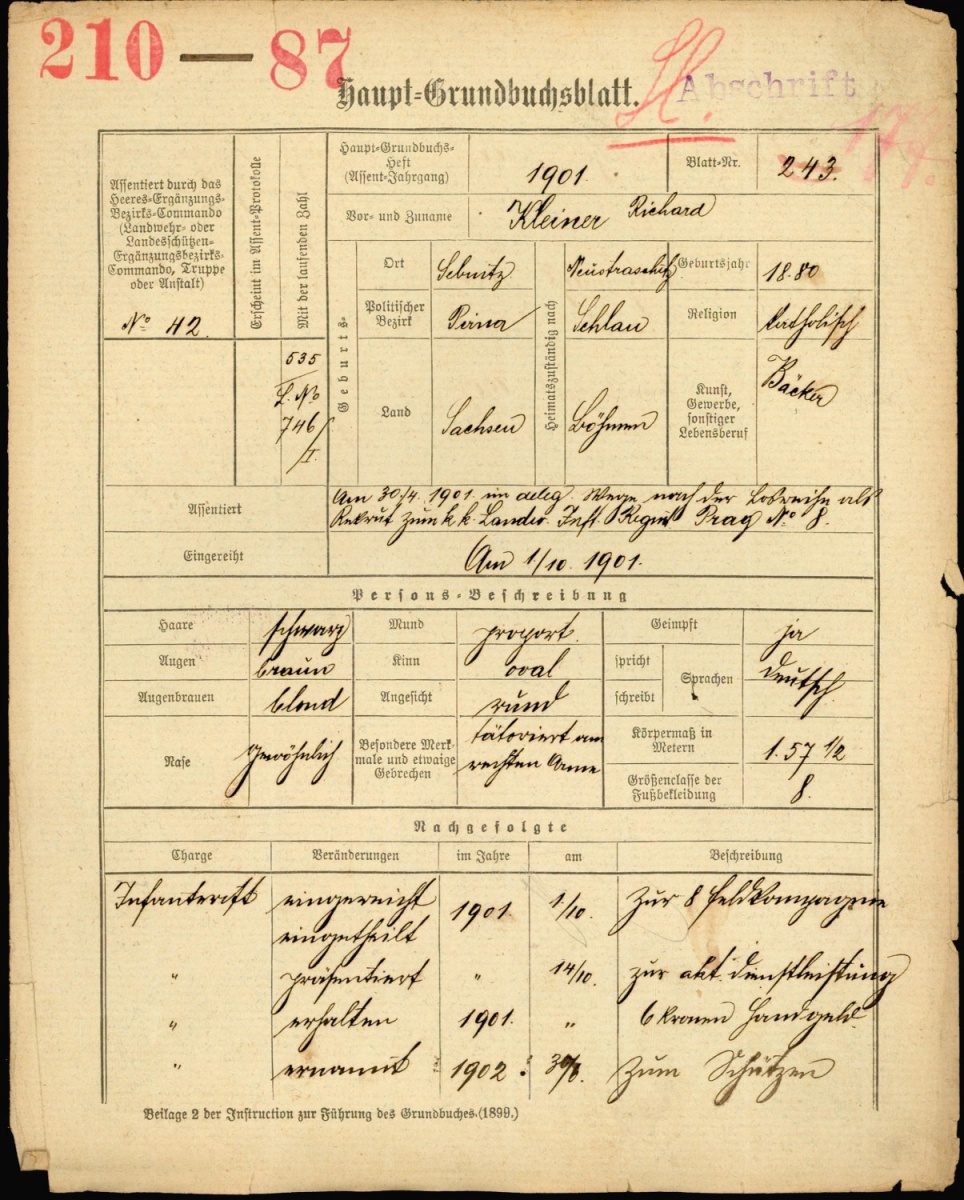 210 — 87
Haupt-Grundbuchsblatt.
Abschrift
Assentiert durch das
Heeres-Ergänzungs-
Bezirks-Commando
(Landwehr- oder
Landesschützen-
Ergänzungsbezirks-
Commando, Truppe
oder Anstalt)
No 42
Erscheint im Assent-Protokolle
Mit der laufenden Zahl
535
L. No
746/I.
Haupt-Grundbuchs-
Heft
(Assent-Jahrgang)
1901.
Blatt-Nr.
243.
Vor- und Zuname
Kleiner Richard
Geburts-
Ort
Sebnitz
Politischer
Bezirk
Pirna
Land
Sachsen
Heimatszuständig nach
Neustraschitz
Schlau
Böhmen
Geburtsjahr
18.80
Religion
katholisch
Kunst,
Gewerbe,
sonstiger
Lebensberuf
Bäcker
Assentiert
Am 30./4. 1901. im deleg. Wege nach der Losreihe als
Rekrut zum k.k. Landw. Inft. Regmt Prag No 8.
Eingereiht
Am 1/10. 1901.
Persons-Beschreibung
Haare
schwarz
Mund
proport.
Geimpft
ja
Augen
braun
Kinn
oval
spricht
schreibt
Sprachen
deutsch
Augenbrauen
blond
Angesicht
rund
Nase
gewöhnlich
Besondere Merk-
male und etwaige
Gebrechen
tätoviert am
rechten Arme
Körpermaß in
Metern
1.57 1/2
Größenclasse der
Fußbekleidung
8.
Nachgefolgte
Charge Veränderungen im Jahre am Beschreibung
Infanterist eingereicht 1901. 1/10. zur 8 Feldkompagnie
eingetheilt
" präsentiert " 14/10. zur akt. Dienstleistung
" erhalten 1901. " 6 Kronen Handgeld
" ernannt 1902 zum Schützen
Beilage 2 der Instruction zur Führung des Grundbuches. (1899.)